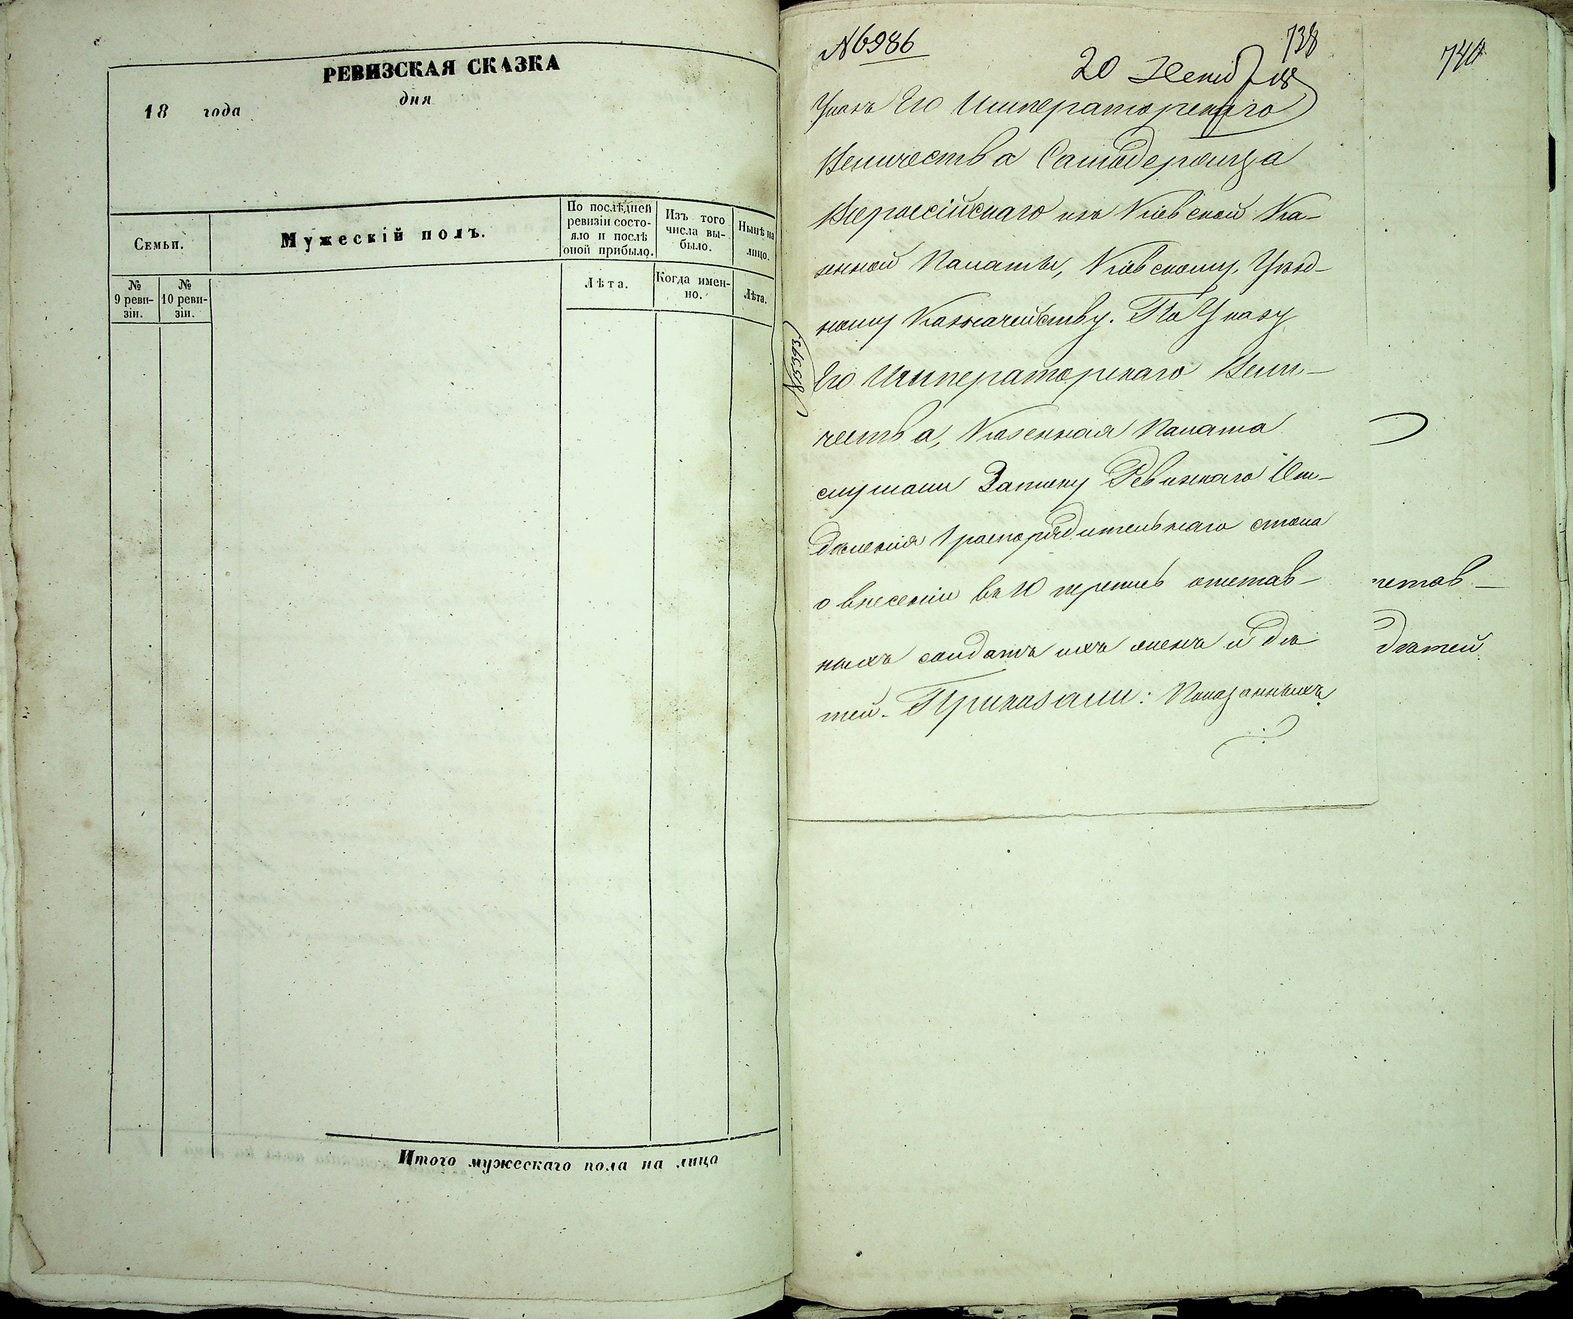 РЕВИЗСКАЯ СКАЗКА
18 года дня
Семьи.
Мужескій полъ.
По послѣдней ревизіи состояло и послѣ оной прибыло.
Изъ того числа выбыло.
Нынѣ на лицо.
№ 9 ревизіи.
№ 10 ревизіи.
Лѣта.
Когда именно.
Лѣта.
Итого мужескаго пола на лицо
№6986
738
740
20
Указъ Его Императорскаго
Величества Самодержца
Всероссійскаго изъ Кіевской Ка-
зенной Палаты, Кіевскому Уѣзд-
ному Казначейству. По Указу
Его Императорскаго Вели-
чества, Казенная Палата
слушали Записку Ревизскаго От-
дѣленія 1 распорядительнаго стола
о внесеніи въ 10 перепись отстав-
ныхъ солдатъ ихъ женъ и дѣ
тей. Приказали: Показанныхъ